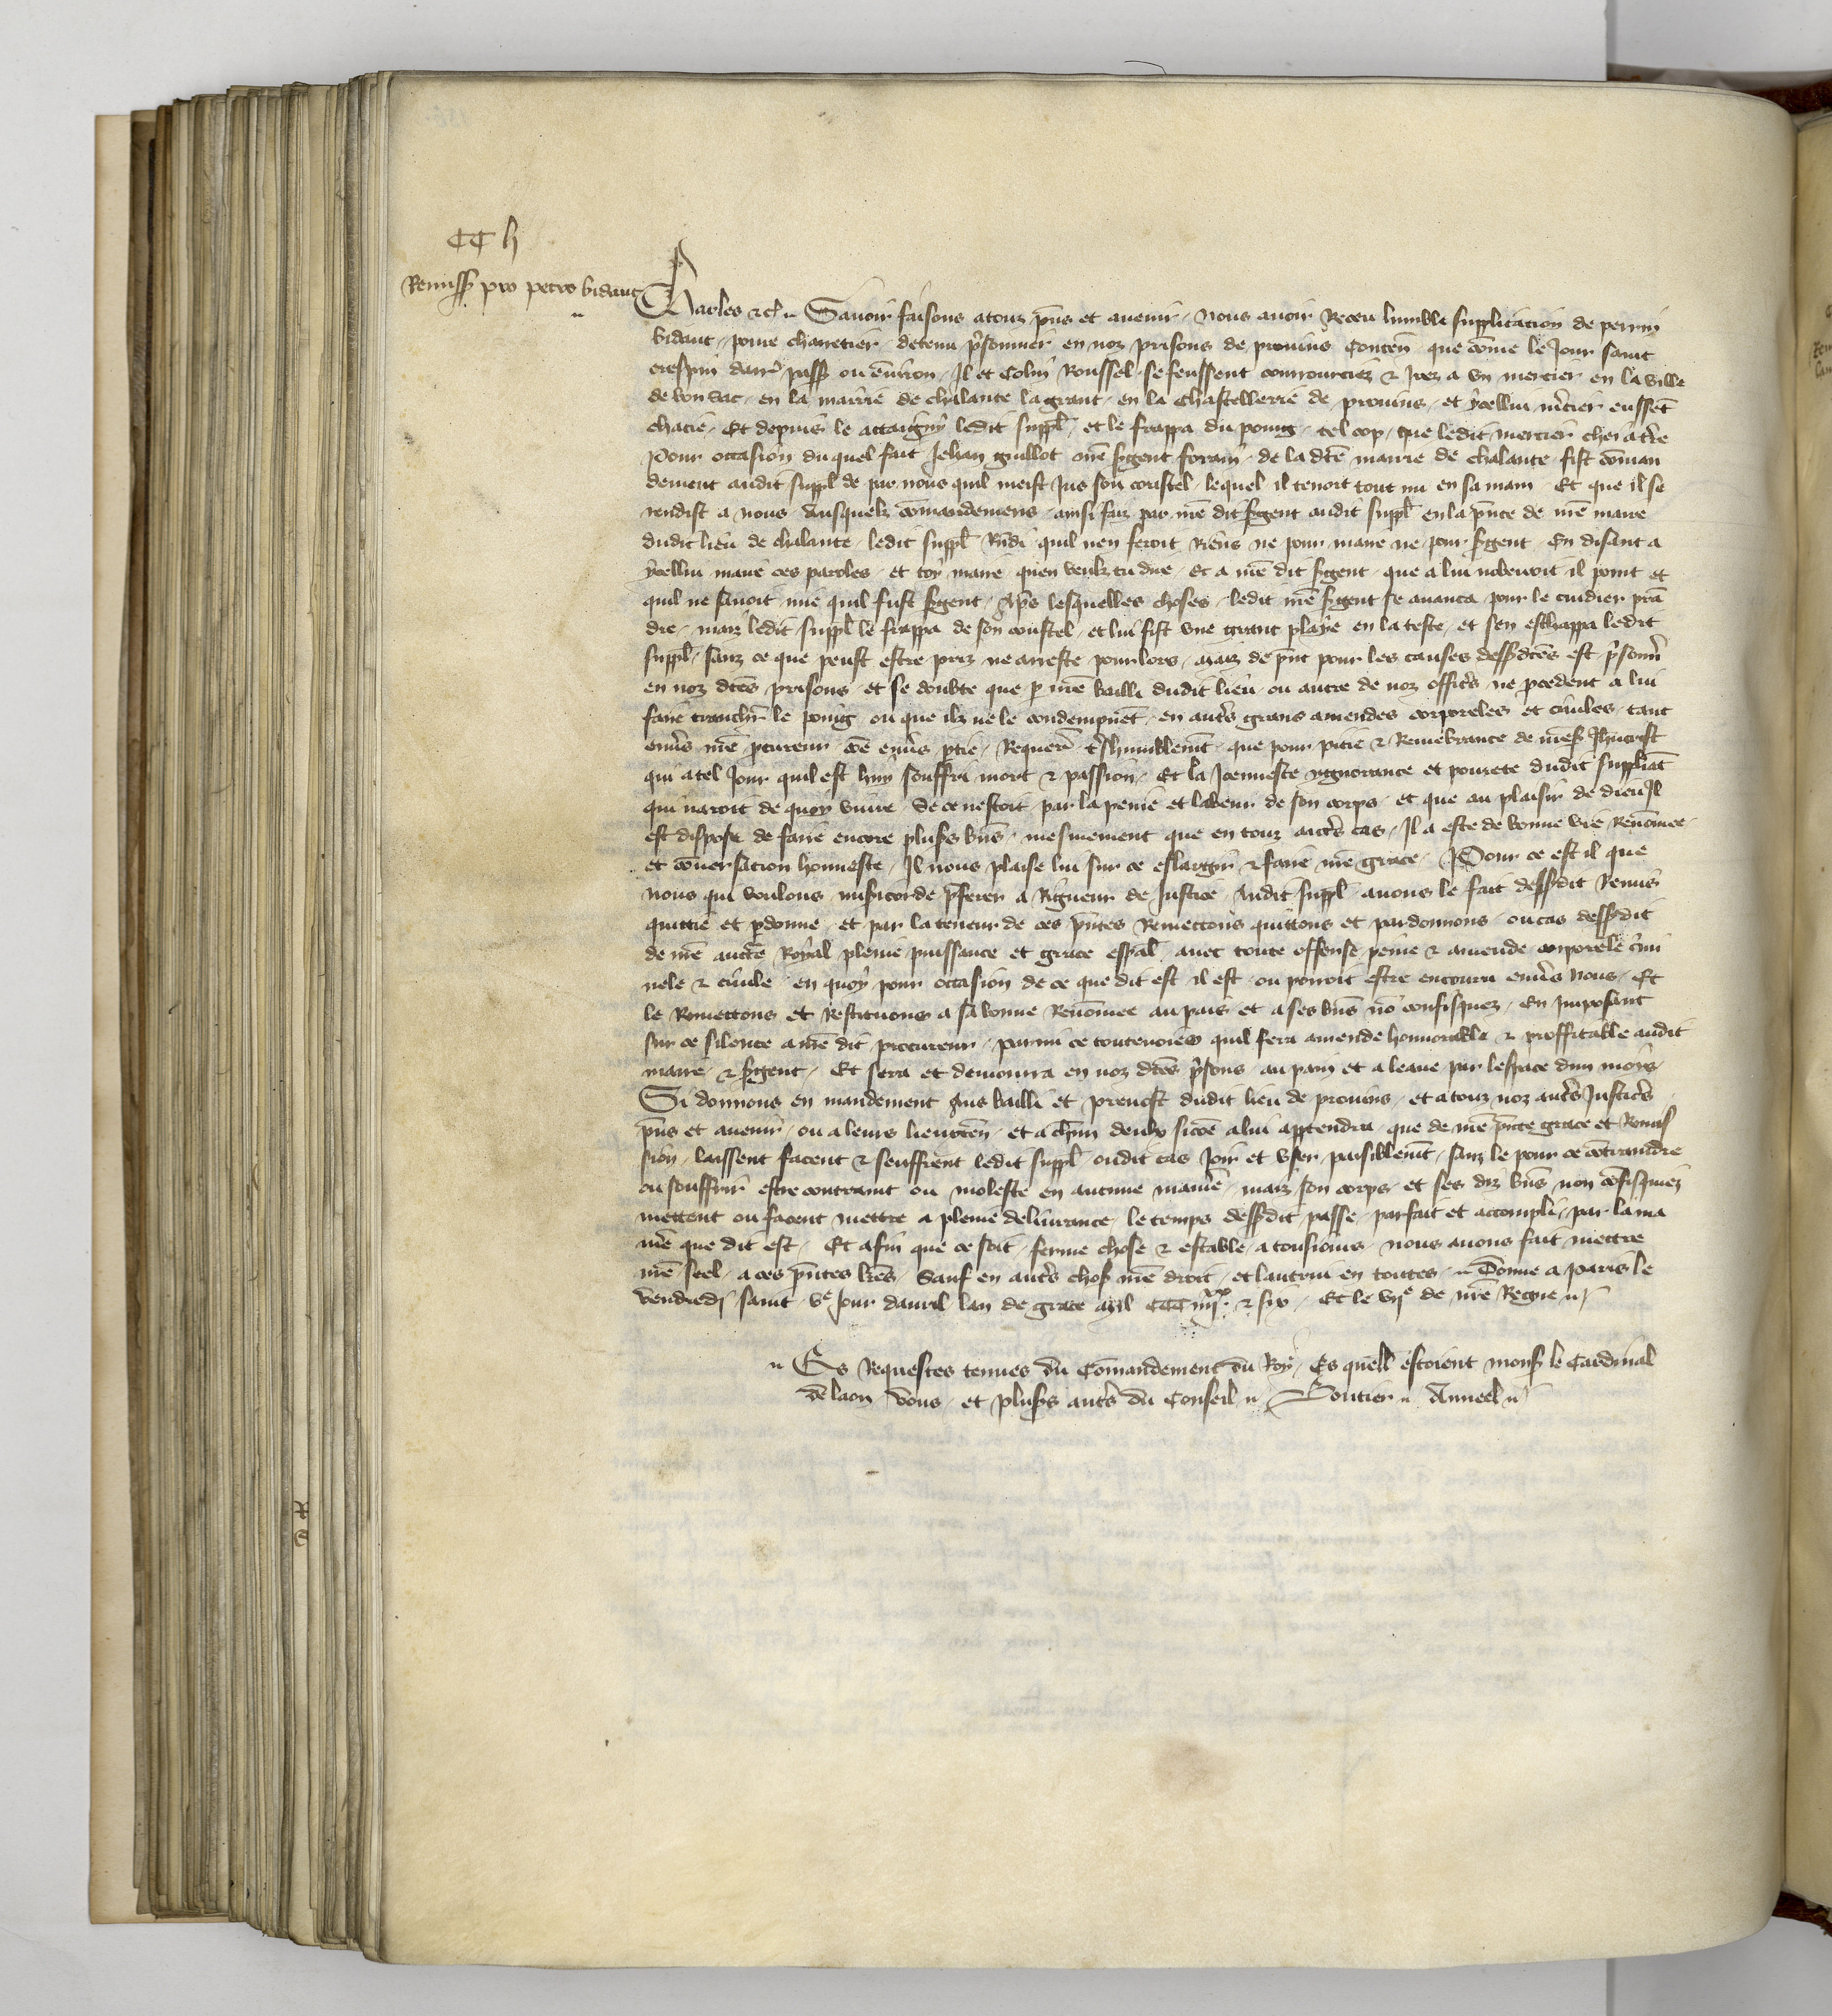 CC h
Remiss pro petro bidaut
Charles etc. Savoir faisons a touz pns et avenir, nous avoir Receu lumble supplicacion de perrin
bidaut, povre charretier, detenu prisonnier en noz prisons de provins, Conten que come le Jour saint
crespin derr pass ou environ, Il et Colin Roussel se feussent courrouciez & Irez a un mercier en la ville
de bon sac, en la mairie de chalante la grant, en la Chastellerie de provins, et ycellui mcier eussent
chacie, Et depuis le attaigny ledit suppl, et le frappa du poing, tel cop, que ledit mercier chei a tre
Pour occasion du quel fait Jehan guillot nre sgent forain, de la dte mairie de chalante, fist coman
dement audit suppl de par nous quil meist Jus son coustel, lequel il tenoit tout nu en sa main, Et que il se
rendist a nous, Ausquelz comandemens, ainsi faiz par nre dit sgent audit suppl, en la pnce de nre maire
dudit lieu de chalante, ledit suppl Rndi quil nen feroit Riens, ne pour maire ne pour sgent, En disant a
ycellui maire ces paroles, et toy maire quen veulz tu dire, et a nre dit sgent, que a lui nobeiroit il point et
quil ne savoit mie quil fust sgent, Aps lesquelles choses, ledit nre sgent se avanca, pour le cuidier pran
dre, maiz ledit suppl le frappa de son coustel, et lui fist une grant playe en la teste, et sen eschappa ledit
suppl, sanz ce que peust estre priz ne arreste pourlors, maiz de pnt pour les causes dessdctes est prisonn
en noz dctes prisons, et se doubte que p nre bailli dudit lieu, ou autre de noz offics ne pcedent a lui
faire tranchr le poing, ou que ilz ne le condempnent, en auts grans amendes corporeles et civiles, tant
envs nre pcureur, coe envs ptie, Requer tshumblemt, que pour pitie & Remebrance de nres Jhucrist
qui a tel Jour quil est huy, souffri mort & passion, Et la Jeunesse ygnorance et povrete dudit suppliat
qui naroit de quoy vivre, se ce nestoit par la peine et labeur de son corps, et que au plaisir de dieu Il
est dispose de faire encore pluss bns, mesmement que en touz auts cas, Il a este de bonne vie, Renomee
et conversacion honneste, Il nous plaise lui sur ce eslargir & faire nre grace, Pour ce est il que
nous qui voulons misicorde pferer a Rigueur de Justice, Audit suppl avons le fait dessdit Remis
quittie et pdonne, et par la teneur de ces pntes Remettons quittons et pardonnons, ou cas dessdit
de nre aucte Royal plaine puissance et grace espal, avec toute offense peine & amende corporele crimi
nele & civile, en quoy pour occasion de ce que dit est, il est ou pouroit estre encouru envs nous, Et
le Remettons et Restituons a sa bonne Renomee au pais, et a ses bns no confisquez, En Imposant
sur ce silence a nre dit procureur, parmi ce toutevoies quil fera amende honnorable & proffitable audit
maire & sgent, Et sera et demoura en noz dctes prisons, au pain et a leaue par lespace dun mois,
Si donnons en mandement aus bailli et prevost dudit lieu de provins, et a touz noz auts Justics
pns et avenir, ou a leurs lieuxten, et a chun deulx sicoe a lui apptendra, que de nre pnte grace et Remis
sion, laissent facent & seuffrent ledit suppl oudit cas Joir et user paisiblemt, sanz le pour ce cotraindre
ou souffrir estre contraint ou moleste en aucune maniere, maiz son corps, et ses diz bns non cofisquiez
mettent ou facent mettre a pleine delivrance, le temps dessdit passe, parfait et accompli, par la ma
niere que dit est, Et afin que ce soit ferme chose & estable a tousiours, nous avons fait mettre
nre seel, a ces pntes lres, Sauf en auts chos nre droit, et lautrui en toutes, Donne a paris le
vendredi saint, ve Jour davril lan de grace mil CCC iiijxx & six, Et le vije de nre Regne
Es Requestes tenues du Comandement du Roy, Es quell estoient mons le Cardinal
de laon vous, et pluss auts du Conseil, Anneel